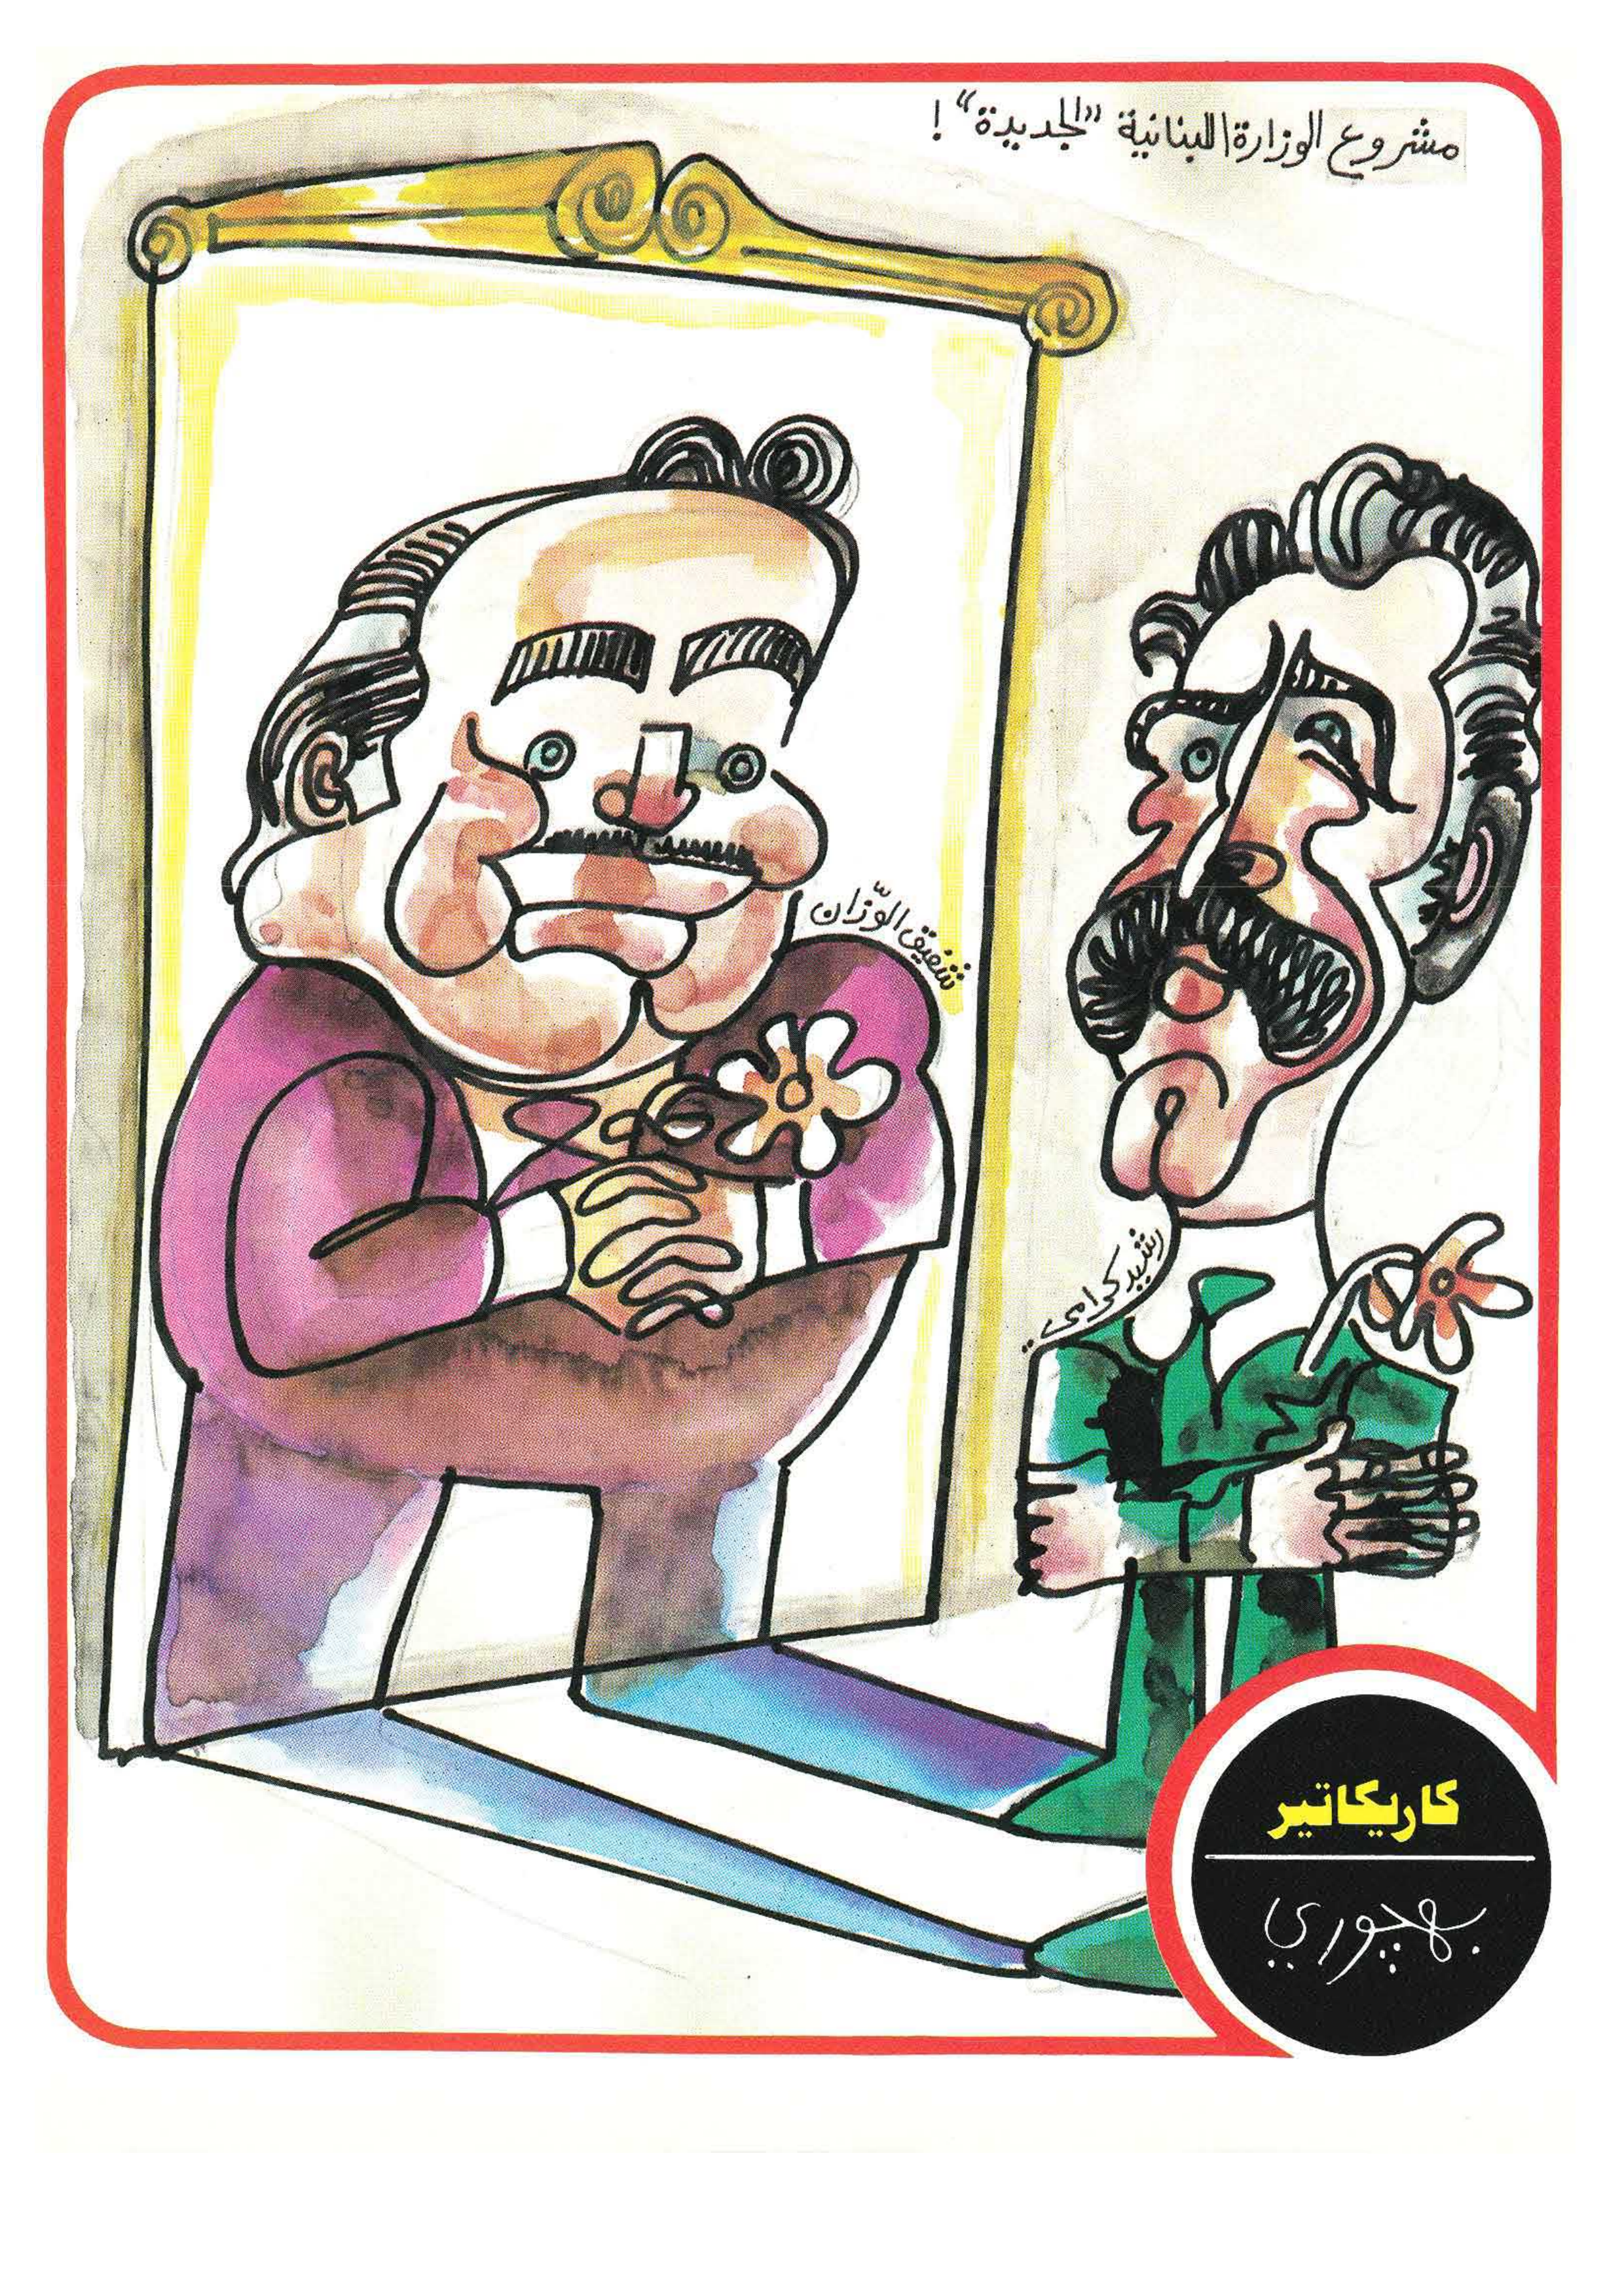 مشروع الوزارة اللبنانية "الجديدة" !
شفيق الوزّان
رشيد كرامي ..
كاريكاتير
بهجوري